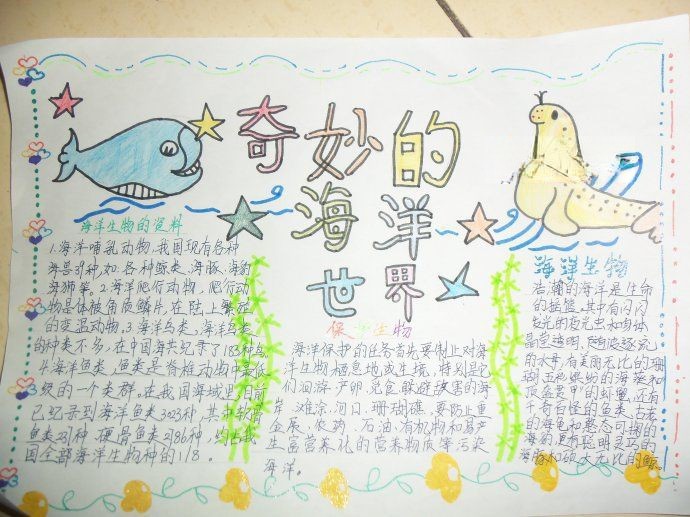 奇妙的
海洋
世界
海洋生物的资料
1.海洋哺乳动物,我国现有各种
海兽39种,如各种鲸类、海豚、海豹
海狮等。2.海洋爬行动物,爬行动
物是体被角质鳞片,在陆上繁殖
的变温动物。3.海洋鸟类,海洋鸟类
的种类不多,在中国海共纪录了183种鸟。
4.海洋鱼类,鱼类是脊椎动物中最低
级的一个类群。在我国海域里,目前
已纪录到海洋鱼类3023种,其中软骨
鱼类237种,硬骨鱼类2786种,约占我
国全部海洋生物种的1/8。
保护生物
海洋保护的任务首先要制止对海
洋生物栖息地或生境,特别是它
们洄游、产卵、觅食、躲避敌害的海
岸、滩涂、河口、珊瑚礁,要防止重
金属、农药、石油、有机物和易产
生富营养化的营养物质等污染
海洋。
海洋生物
浩瀚的海洋是生命
的摇篮,其中有闪闪
发光的夜光虫和肉体
晶莹透明、随波逐流
的水母,有美丽无比的珊
的海葵和
的虾蟹,还有
千奇百怪的鱼类,古老
的海龟和憨态可掬的
海豹,更有聪明灵巧的
海豚和硕大无比的鲸。